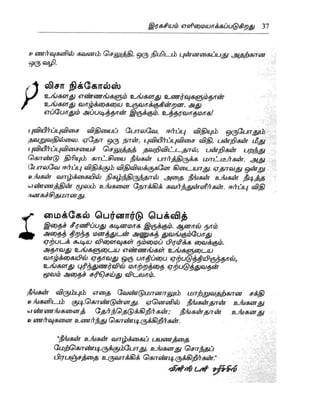 இரகசியம் எளிமையாக்கப்படுகிறது 37
உணர்வுகளில் கவனம் செலுத்தி, ஒரு நிமிடம் புன்னகைப்பது அதற்கான
ஒரு வழி.
லிசா நிக்கோல்ஸ்
உங்களது எண்ணங்களும் உங்களது உணர்வுகளும்தான்
உங்களது வாழ்க்கையை உருவாக்குகின்றன. அது
எப்போதும் அப்படித்தான் இருக்கும். உத்தரவாதமாக!
புவியீர்ப்புவிசை விதியைப் போலவே, ஈர்ப்பு விதியும் ஒருபோதும்
தவறுவதில்லை. ஏதோ ஒரு நாள், புவியீர்ப்புவிசை விதி, பன்றிகள் மீது
புவியீர்ப்புவிசையைச் செலுத்தத் தவறிவிட்டதால், பன்றிகள் பறந்து
கொண்டு திரியும் காட்சியை நீங்கள் பார்த்திருக்க மாட்டீர்கள். அது
போலவே ஈர்ப்பு விதிக்கும் விதிவிலக்குகளே கிடையாது. ஏதாவது ஒன்று
உங்கள் வாழ்க்கையில் நிகழ்ந்திருந்தால் அதை நீங்கள் உங்கள் நீடித்த
எண்ணத்தின் மூலம் உங்களை நோக்கிக் கவர்ந்துள்ளீர்கள். ஈர்ப்பு விதி
கனகச்சிதமானது.
மைக்கேல் பெர்னார்டு பெக்வித்
இதைச் சீரணிப்பது கடினமாக இருக்கும். ஆனால் நாம்
இதைத் திறந்த மனத்துடன் அணுகத் துவங்கும்போது
ஏற்படக் கூடிய விளைவுகள் நம்மைப் பிரமிக்க வைக்கும்.
அதாவது உங்களுடைய எண்ணங்கள் உங்களுடைய
வாழ்க்கையில் ஏதாவது ஒரு பாதிப்பை ஏற்படுத்தியிருந்தால்,
உங்களது புரிந்துணர்வில் மாற்றத்தை ஏற்படுத்துவதன்
மூலம் அதைச் சரிசெய்து விடலாம்.
நீங்கள் விரும்பும் எதை வேண்டுமானாலும் மாற்றுவதற்கான சக்தி
உங்களிடம் குடிகொண்டுள்ளது. ஏனெனில் நீங்கள்தான் உங்களது
எண்ணங்களைத் தேர்ந்தெடுக்கிறீர்கள்; நீங்கள்தான் உங்களது
உணர்வுகளை உணர்ந்து கொண்டிருக்கிறீர்கள்.
"நீங்கள் உங்கள் வாழ்க்கைப் பயணத்தை
மேற்கொண்டிருக்கும்போது, உங்களது சொந்தப்
பிரபஞ்சத்தை உருவாக்கிக் கொண்டிருக்கிறீர்கள்."